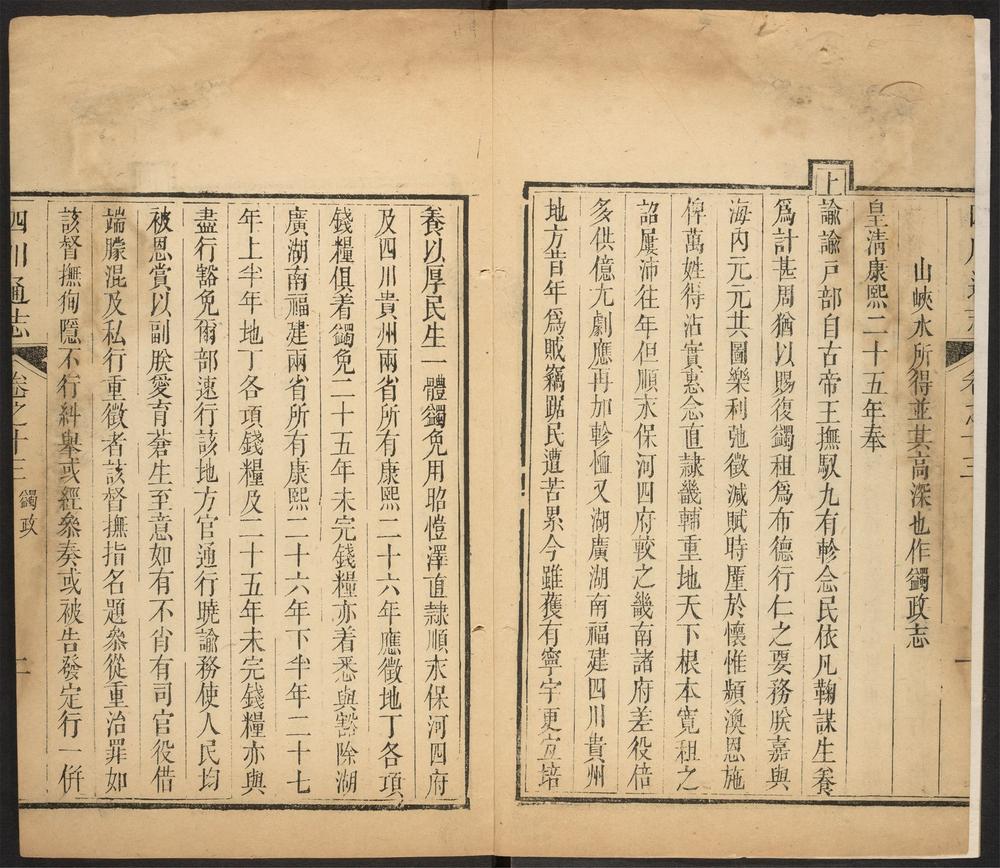 山峽水所得並其高深也作蠲政志
皇淸康熙二十五年奉
上
諭諭戸部自古帝王撫馭九有軫念民依凡鞠謀生養
爲計甚周猶以賜復蠲租爲布德行仁之要務朕嘉與
海內元元共圖樂利弛徵減賦時厪於懷惟頻渙恩施
俾萬姓得沾實惠念直隸畿輔重地天下根本寬租之
詔屢沛往年但順永保河四府較之畿南諸府差役倍
多供億尤劇應再加軫恤又湖廣湖南福建四川貴州
地方昔年爲賊竊踞民遭苦累今雖獲有寧宇更宜培
養以厚民生一體蠲免用昭愷澤直隸順永保河四府
及四川貴州兩省所有康熙二十六年應徵地丁各項
錢糧俱着蠲免二十五年未完錢糧亦着悉與豁除湖
廣湖南福建兩省所有康熙二十六年下半年二十七
年上半年地丁各項錢糧及二十五年未完錢糧亦與
盡行豁免爾部速行該地方官通行曉諭務使人民均
被恩賞以副朕愛育蒼生至意如有不肖有司官役借
端朦混及私行重徵者該督撫指名題叅從重治罪如
該督撫徇隱不行糾舉或經叅奏或被告發定行一倂
四川通志 卷之十三 蠲政 二